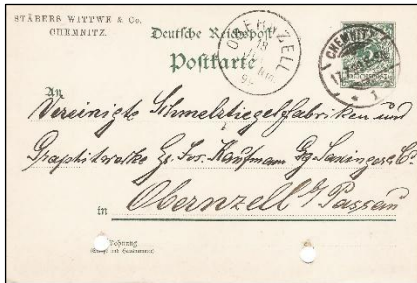 STÄBERS WITTWE & Co.
CHEMNITZ.
Deutsche Reichspost
Postkarte
OBERNZELL
18
CHEMNITZ
1
An
Vereinigte Schmelztiegelfabriken und
Graphitwerke Gg. Saxinger &
in Obernzell b/ Passau
Wohnung
(Straße und Hausnummer)